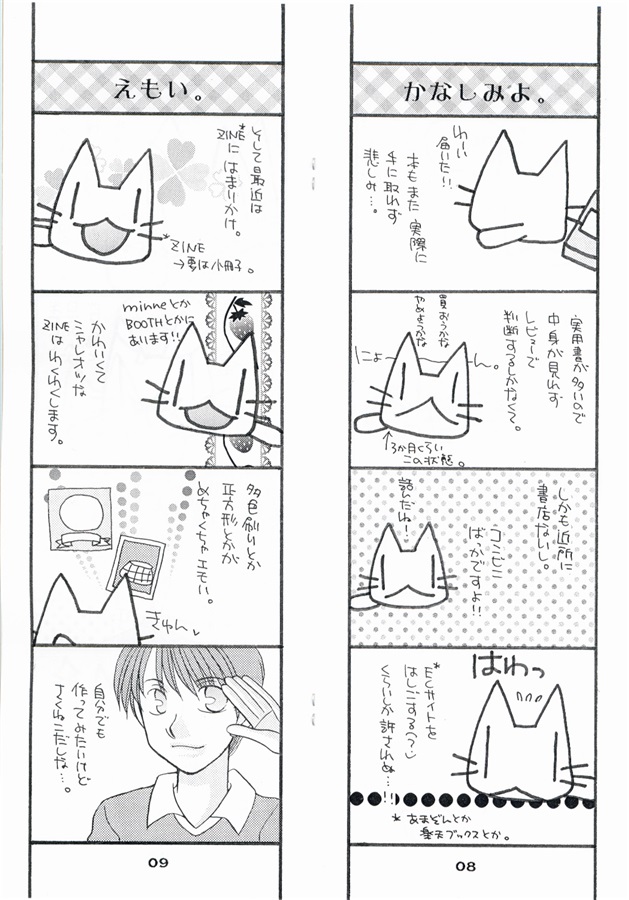 かなしみよ。
わーい
届いた!!
本もまた 実際に
手に取れず
悲しみ…。
実用書が多いので
中身が見れず
レビューで
判断するしかなくて。
買おうかな
やめようかな
にょ
ん。
↑3か月くらい
この状態。
しかも近所に
書店ないし。
コンビニ
ばっかですよ!!
詰んだね!
はわっ
*ECサイトを
はしごする(?)
くらいしか許されぬ…!!
* あまぞんとか
楽天ブックスとか。
08
えもい。
そして最近は
ZINE*に はまりかけ。
*ZINE
→要は小冊子。
minneとか
BOOTHとかに
あります!!
かわいくて
ミシャレオツな
ZINEは わくわくします。
多色刷りとか
正方形とかが
めちゃくちゃエモい。
きゅん
自分でも
作ってみたいけど
さくねこだしな…。
09